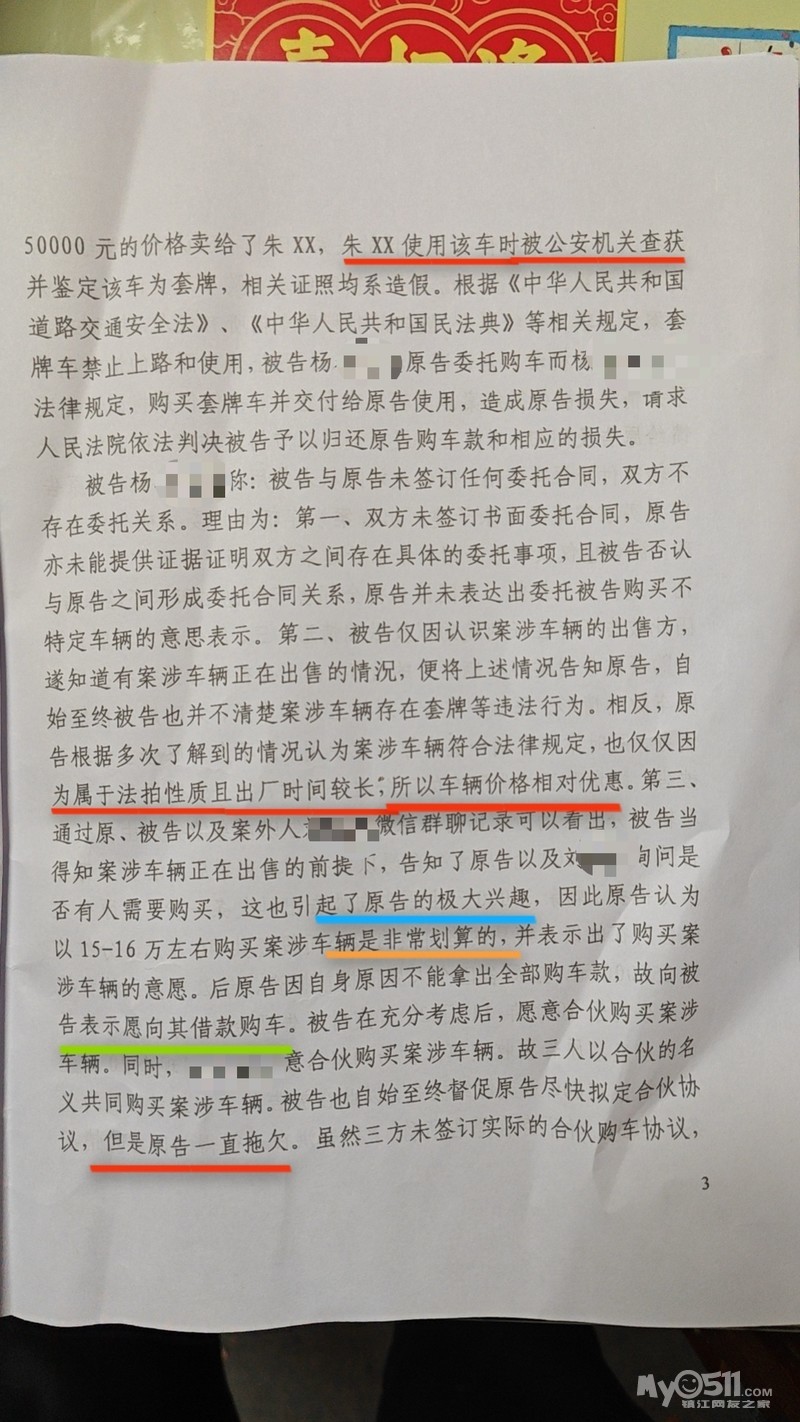 50000 元的价格卖给了朱 XX，朱 XX 使用该车时被公安机关查获
并鉴定该车为套牌，相关证照均系造假。根据《中华人民共和国
道路交通安全法》、《中华人民共和国民法典》等相关规定，套
牌车禁止上路和使用，被告杨 原告委托购车而杨
法律规定，购买套牌车并交付给原告使用，造成原告损失，请求
人民法院依法判决被告予以归还原告购车款和相应的损失。
被告杨 称：被告与原告未签订任何委托合同，双方不
存在委托关系。理由为：第一、双方未签订书面委托合同，原告
亦未能提供证据证明双方之间存在具体的委托事项，且被告否认
与原告之间形成委托合同关系，原告并未表达出委托被告购买不
特定车辆的意思表示。第二、被告仅因认识案涉车辆的出售方，
遂知道有案涉车辆正在出售的情况，便将上述情况告知原告，自
始至终被告也并不清楚案涉车辆存在套牌等违法行为。相反，原
告根据多次了解到的情况认为案涉车辆符合法律规定，也仅仅因
为属于法拍性质且出厂时间较长，所以车辆价格相对优惠。第三、
通过原、被告以及案外人 微信群聊记录可以看出，被告当
得知案涉车辆正在出售的前提下，告知了原告以及刘 询问是
否有人需要购买，这也引起了原告的极大兴趣，因此原告认为
以 15-16 万左右购买案涉车辆是非常划算的，并表示出了购买案
涉车辆的意愿。后原告因自身原因不能拿出全部购车款，故向被
告表示愿向其借款购车。被告在充分考虑后，愿意合伙购买案涉
车辆。同时， 意合伙购买案涉车辆。故三人以合伙的名
义共同购买案涉车辆。被告也自始至终督促原告尽快拟定合伙协
议，但是原告一直拖欠。虽然三方未签订实际的合伙购车协议，
3
My0511.com
镇江网友之家